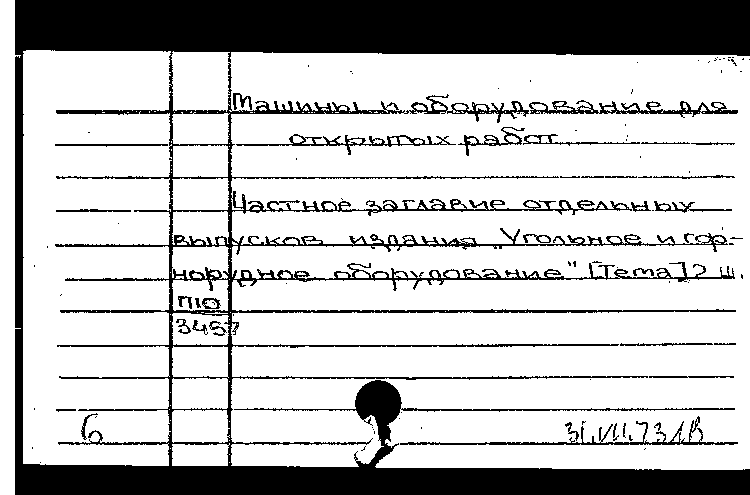 Машины и оборудование для
открытых работ.
Частное заглавие отдельных
выпусков издания „Угольное и гор-
норудное оборудование" [Тема]? ш.
П10
3457
6
31.VII.73 ЛВ